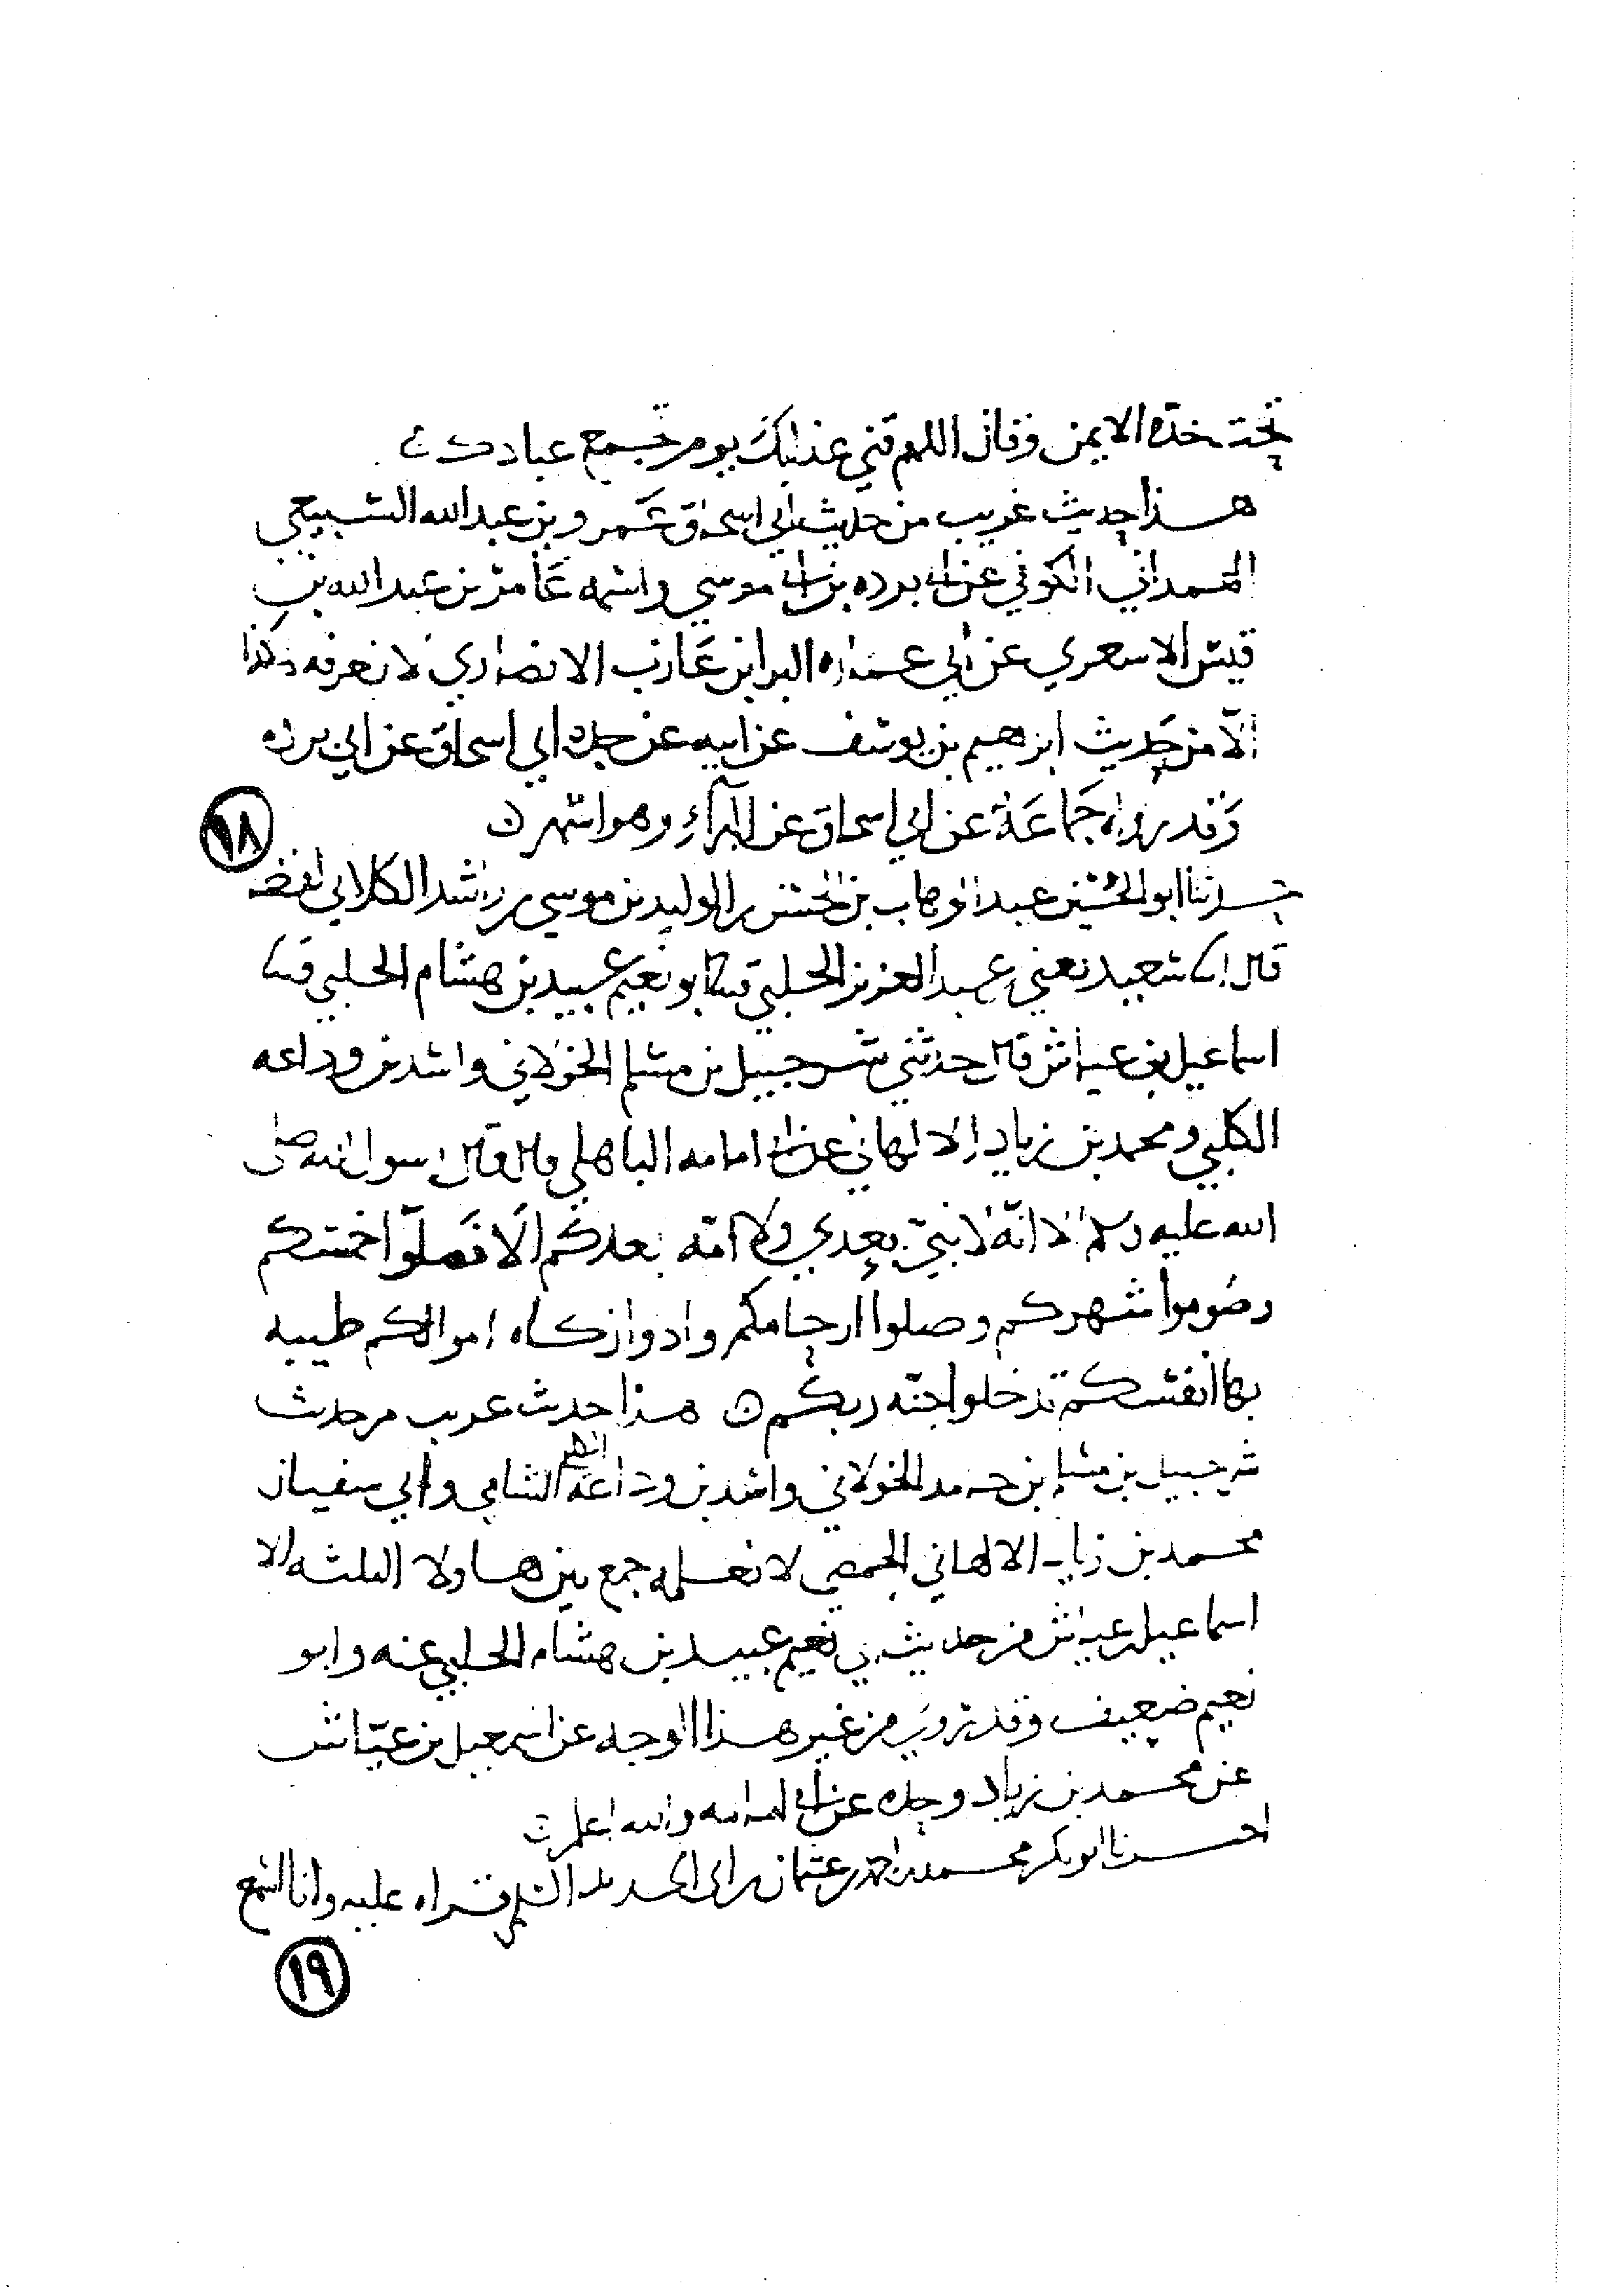 تحت خده الايمن وقال اللهم قني عذابك يوم تجمع عبادك
هذا حديث غريب من حديث ابي اسحاق عمرو بن عبد الله السبيعي
الهمداني الكوفي عن ابي برده بن ابي موسي واسمه عامر بن عبد الله بن
قيس الاسعري عن ابي عماره البرا بن عازب الانصاري لا نعرفه هكذا
الا من حديث ابرهيم بن يوسف عن ابيه عن جده ابي اسحاق عن ابي برده
وقد رواه جماعة عن ابي اسحاق عن البرآء وهو اشهر ن
١٨
حدثنا ابو الحسين عبد الوهاب بن الحسن بن الوليد بن موسي بن راشد الكلابي لفظه
قال ابنا سعيد يعني بن عبد العزيز الحلبي قثنا ابو نعيم عبيد بن هشام الحلبي قثنا
اسماعيل بن عياش قال حدثني شرحبيل بن مسلم الخولاني واسد بن وداعه
الكلبي ومحمد بن زياد الالهاني عن ابي امامه الباهلي قال قال رسول الله صلى
الله عليه وسلم الا انه لا نبي بعدي ولا امه بعدكم الا فصلوا خمسكم
وصوموا شهركم وصلوا ارحامكم وادوا زكاه اموالكم طيبه
بها انفسكم تدخلوا جنه ربكم ن هذا حدث عرب من حدث
شرحبيل بن مسلم بن حامد الخولاني واسد بن وداعة الكلبي الشامي وابي سفيان
محمد بن زياد الالهاني الحمصي لا نعلمه جمع بين هاولا الثلثه الا
اسماعيل بن عياش من حديث ابي نعيم عبيد بن هشام الحلبي عنه وابو
نعيم ضعيف وقد روي من غير هذا الوجه عن اسمعيل بن عياش
عن محمد بن زياد وحده عن ابي امامه والله اعلم ن
اخبرنا ابو بكر محمد بن احمد بن عثمان بن ابي الحديد السلمي قراه عليه وانا اسمع
١٩